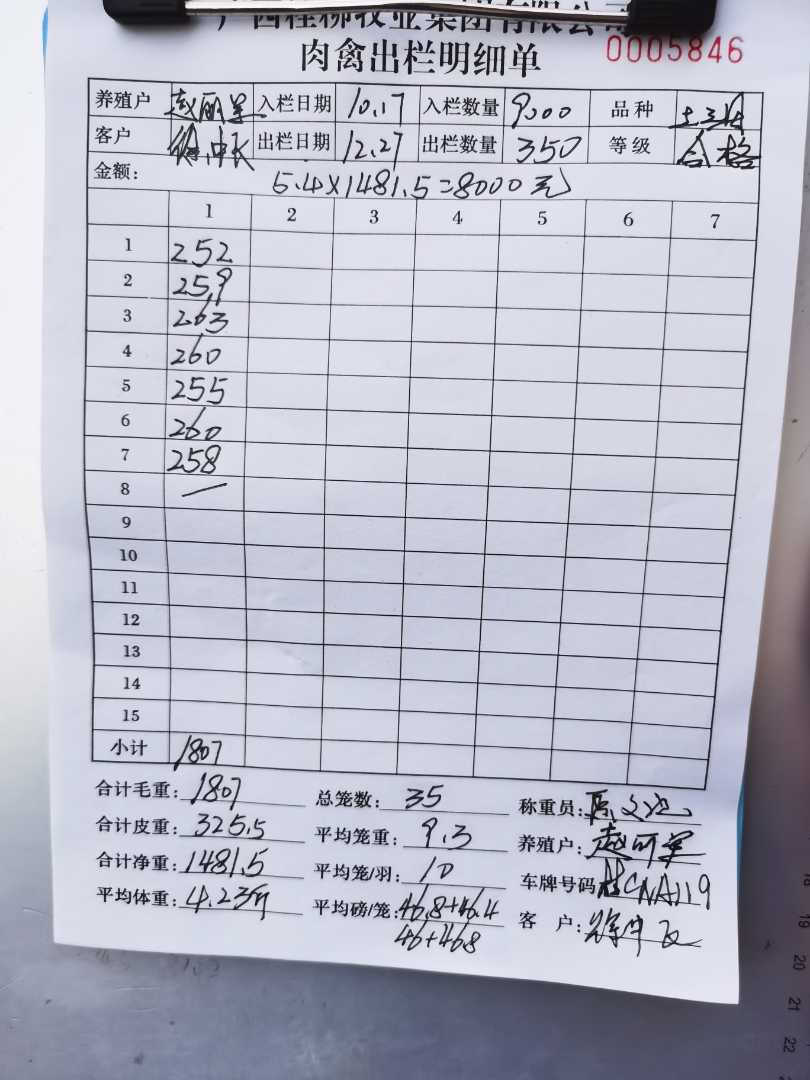 广西桂柳牧业集团有限公司
肉禽出栏明细单 0005846
养殖户 赵丽军 入栏日期 10.17 入栏数量 9000 品种
客户 出栏日期 12.27 出栏数量 350 等级 合格
金额: 5.4×1481.5=8000元
1 2 3 4 5 6 7
1 252
2 259
3 263
4 260
5 255
6 260
7 258
8 —
9
10
11
12
13
14
15
小计 1807
合计毛重: 1807 总笼数: 35 称重员:
合计皮重: 325.5 平均笼重: 9.3 养殖户:
合计净重: 1481.5 平均笼/羽: 10 车牌号码 桂CNA119
平均体重: 4.23斤 平均磅/笼: 46.8+46.4 客 户:
46+46.8
18
19
20
21
22